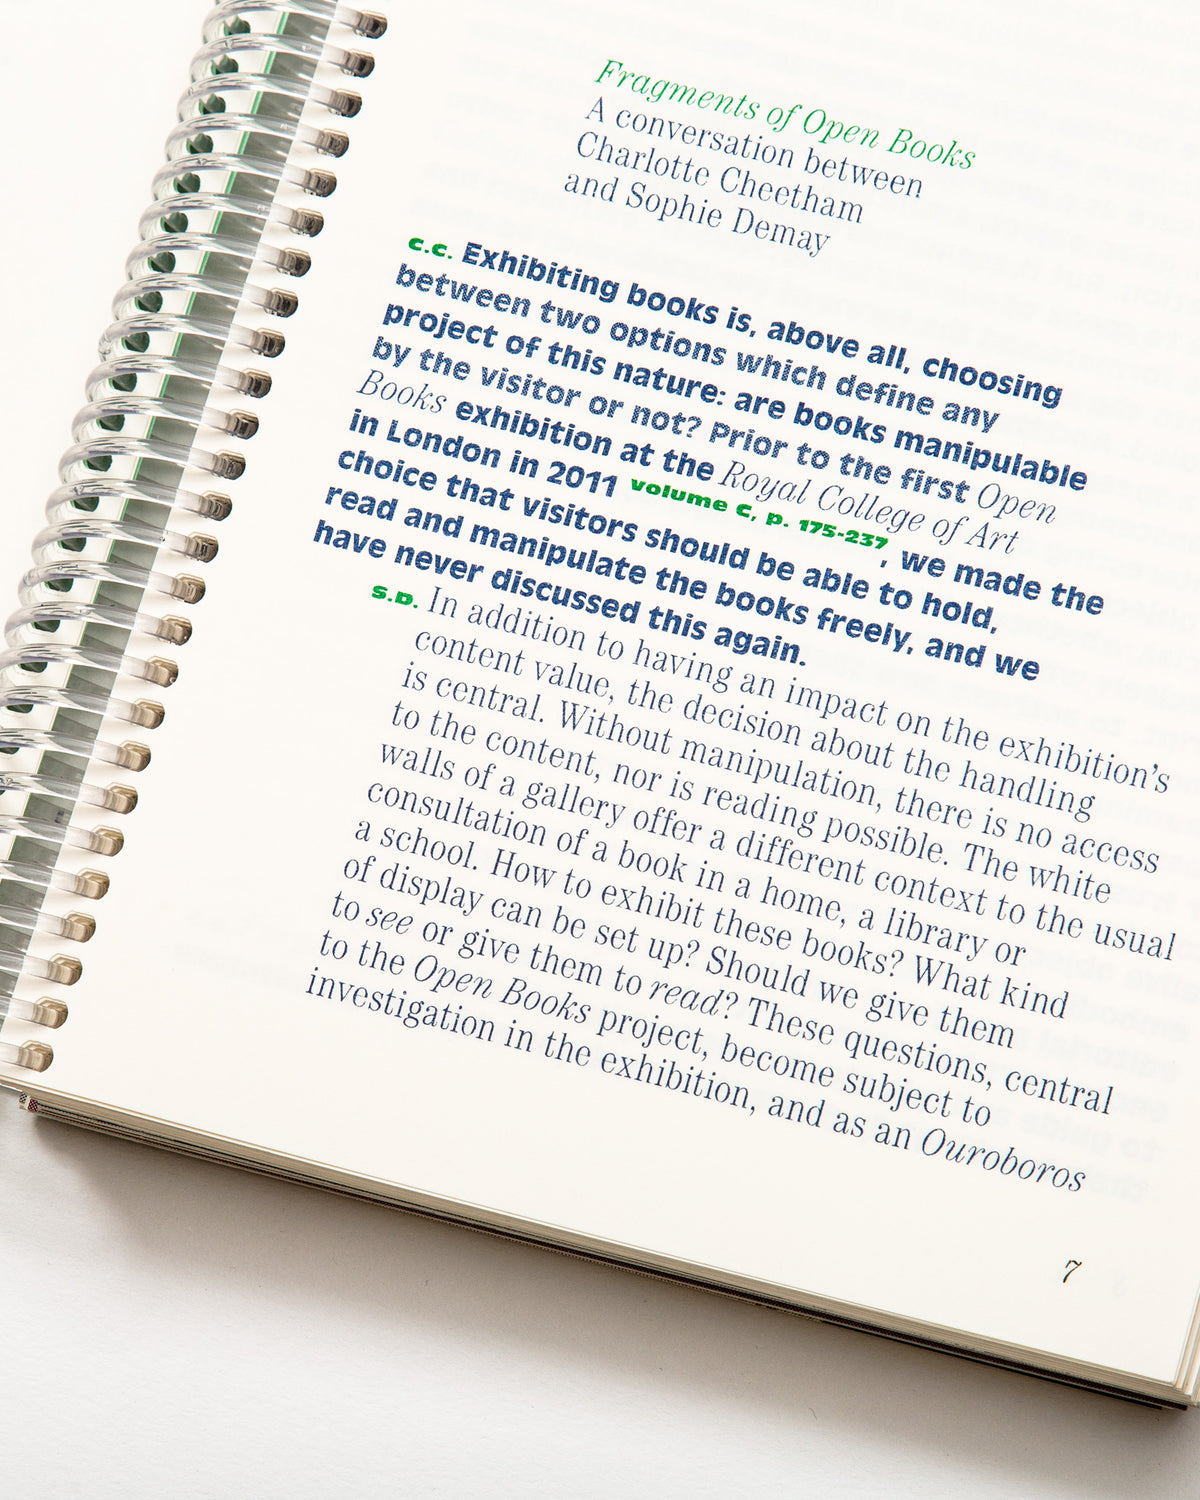 Fragments of Open Books
A conversation between
Charlotte Cheetham
and Sophie Demay
C.C. Exhibiting books is, above all, choosing
between two options which define any
project of this nature: are books manipulable
by the visitor or not? Prior to the first Open
Books exhibition at the Royal College of Art
in London in 2011 volume C, p. 175-237, we made the
choice that visitors should be able to hold,
read and manipulate the books freely, and we
have never discussed this again.
S.D. In addition to having an impact on the exhibition’s
content value, the decision about the handling
is central. Without manipulation, there is no access
to the content, nor is reading possible. The white
walls of a gallery offer a different context to the usual
consultation of a book in a home, a library or
a school. How to exhibit these books? What kind
of display can be set up? Should we give them
to see or give them to read? These questions, central
to the Open Books project, become subject to
investigation in the exhibition, and as an Ouroboros
7